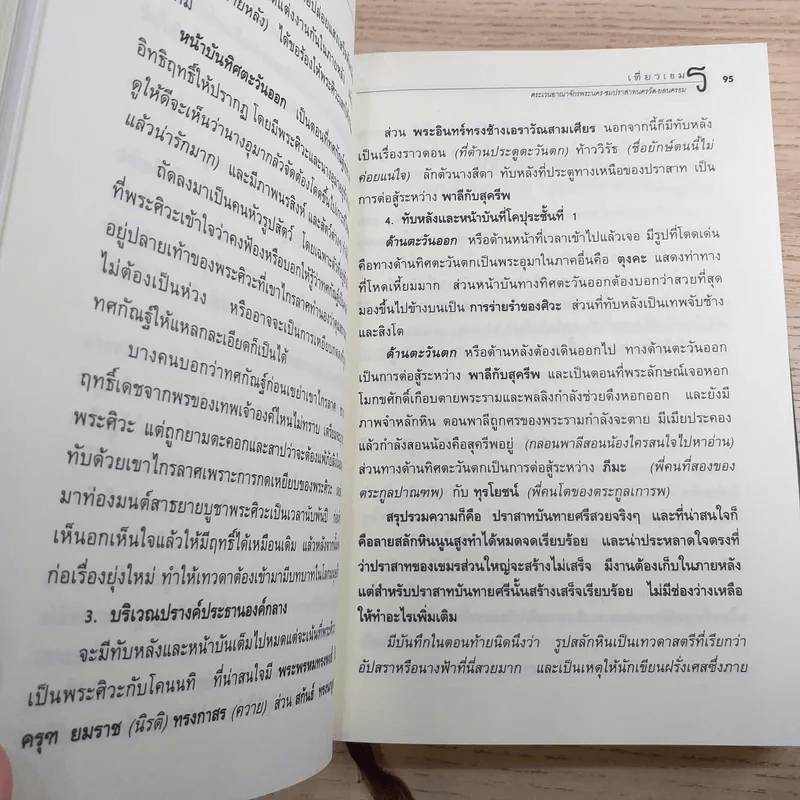 หน้าบันทิศตะวันออก เป็นตอนที่
อิทธิฤทธิ์ให้ปรากฏ โดยมีพระศิวะและนาง
ดูให้ดีจะเห็นว่านางอุมากลัวจัดต้องโดดขึ้น
แล้วน่ารักมาก) และมีภาพนรสิงห์ และสัตว์
ถัดลงมาเป็นคนหัวรูปสัตว์ โดยเฉพาะ
ที่พระศิวะเข้าใจว่าคงฟ้องหรือบอกให้รู้ว่า
อยู่ปลายเท้าของพระศิวะที่เขาไกรลาศทำนองว่า
ไม่ต้องเป็นห่วง หรืออาจจะเป็นการเหยียบ
ทศกัณฐ์ให้แหลกละเอียดก็เป็นได้
บางคนบอกว่าทศกัณฐ์ก่อนเขย่าเขาไกรลาศ
ฤทธิ์เดชจากพรของเทพเจ้าองค์ไหนไม่ทราบ
พระศิวะ แต่ถูกยามตะคอกและสาปว่าจะต้องแพ้
ทับด้วยเขาไกรลาศเพราะการกดเหยียบของพระศิวะ
มาท่องมนต์สาธยายบูชาพระศิวะเป็นเวลานับพันปี
เห็นอกเห็นใจแล้วให้มีฤทธิ์ได้เหมือนเดิม แล้วหลังจากนั้น
ก่อเรื่องยุ่งใหม่ ทำให้เทวดาต้องเข้ามามีบทบาทในโลก
3. บริเวณปรางค์ประธานองค์กลาง
จะมีทับหลังและหน้าบันเต็มไปหมดแต่จะเน้นที่
เป็นพระศิวะกับโคนนทิ ที่น่าสนใจมี พระพรหมทรงหงส์
ครุฑ ยมราช (นิรติ) ทรงกาสร (ควาย) ส่วน สกันธ์
เที่ยวเขมร 95
ตระเวนอาณาจักรพระนคร-ชมปราสาทนครวัด-ยลนครธม
ส่วน พระอินทร์ทรงช้างเอราวัณสามเศียร นอกจากนี้ก็มีทับหลัง
เป็นเรื่องราวตอน (ที่ด้านประตูตะวันตก) ท้าววิรัธ (ชื่อยักษ์ตนนี้ไม่
ค่อยแน่ใจ) ลักตัวนางสีดา ทับหลังที่ประตูทางเหนือของปราสาท เป็น
การต่อสู้ระหว่าง พาลีกับสุครีพ
4. ทับหลังและหน้าบันที่โคปุระชั้นที่ 1
ด้านตะวันออก หรือด้านหน้าที่เวลาเข้าไปแล้วเจอ มีรูปที่โดดเด่น
คือทางด้านทิศตะวันตกเป็นพระอุมาในภาคอื่นคือ ตุงคะ แสดงท่าทาง
ที่โหดเหี้ยมมาก ส่วนหน้าบันทางทิศตะวันออกต้องบอกว่าสวยที่สุด
มองขึ้นไปข้างบนเป็น การร่ายรำของศิวะ ส่วนที่ทับหลังเป็นเทพจับช้าง
และลิงโต
ด้านตะวันตก หรือด้านหลังต้องเดินออกไป ทางด้านตะวันออก
เป็นการต่อสู้ระหว่าง พาลีกับสุครีพ และเป็นตอนที่พระลักษณ์เจอหอก
โมกขศักดิ์เกือบตายพระรามและพลลิงกำลังช่วยดึงหอกออก และยังมี
ภาพจำหลักหิน ตอนพาลีถูกศรของพระรามกำลังจะตาย มีเมียประคอง
แล้วกำลังสอนน้องคือสุครีพอยู่ (กลอนพาลีสอนน้องใครสนใจไปหาอ่าน)
ส่วนทางด้านทิศตะวันตกเป็นการต่อสู้ระหว่าง ภีมะ (พี่คนที่สองของ
ตระกูลปาณฑพ) กับ ทุรโยชน์ (พี่คนโตของตระกูลเการพ)
สรุปรวมความก็คือ ปราสาทบันทายศรีสวยจริงๆ และที่น่าสนใจก็
คือลายสลักหินนูนสูงทำได้หมดจดเรียบร้อย และน่าประหลาดใจตรงที่
ว่าปราสาทของเขมรส่วนใหญ่จะสร้างไม่เสร็จ มีงานต้องเก็บในภายหลัง
แต่สำหรับปราสาทบันทายศรีนั้นสร้างเสร็จเรียบร้อย ไม่มีช่องว่างเหลือ
ให้ทำอะไรเพิ่มเติม
มีบันทึกในตอนท้ายนิดนึงว่า รูปสลักหินเป็นเทวดาสตรีที่เรียกว่า
อัปสราหรือนางฟ้าที่นี่สวยมาก และเป็นเหตุให้นักเขียนฝรั่งเศสซึ่งภาย